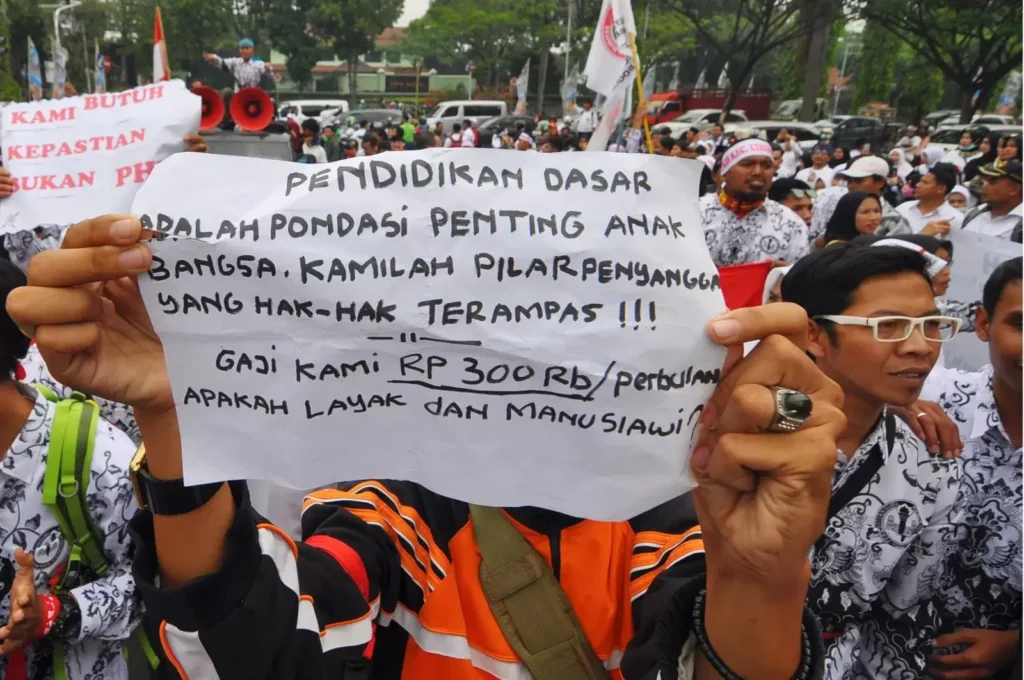 KAMI BUTUH
KEPASTIAN
BUKAN PH
PENDIDIKAN DASAR
ADALAH PONDASI PENTING ANAK
BANGSA. KAMILAH PILAR PENYANGGA
YANG HAK-HAK TERAMPAS !!!
GAJI KAMI RP 300 Rb/perbulan
APAKAH LAYAK dan MANUSIAWI?